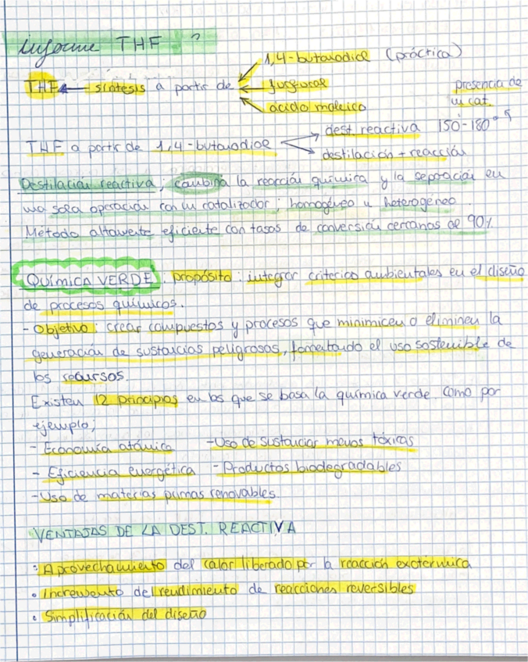 informe THF ?
1,4-butanodiol (práctica)
THF ← síntesis a partir de ← furfural
ácido maleico
presencia de un cat.
THF a partir de 1,4-butanodiol
dest. reactiva 150-180º
destilación + reacción
Destilación reactiva; combina la reacción química y la separación en
una sola operación con un catalizador; homogéneo u heterogéneo.
Método altamente eficiente con tasas de conversión cercanas al 90%
QUÍMICA VERDE: propósito: integrar criterios ambientales en el diseño
de procesos químicos.
- Objetivo: crear compuestos y procesos que minimicen o eliminen la
generación de sustancias peligrosas, fomentando el uso sostenible de
los recursos.
Existen 12 principios en los que se basa la química verde como por
ejemplo;
- Economía atómica - Uso de sustancias menos tóxicas
- Eficiencia energética - Productos biodegradables
- Uso de materias primas renovables
VENTAJAS DE LA DEST. REACTIVA
• Aprovechamiento del calor liberado por la reacción exotérmica
• Incremento del rendimiento de reacciones reversibles
• Simplificación del diseño